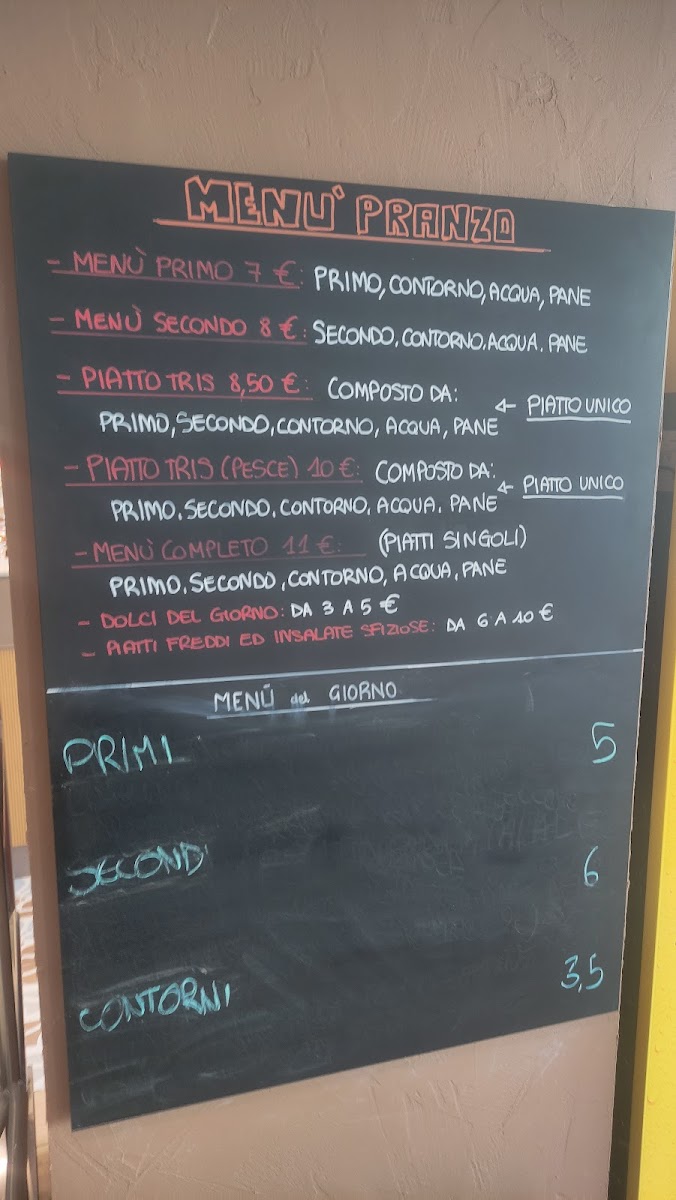 MENU' PRANZO
- MENÙ PRIMO 7 €: PRIMO, CONTORNO, ACQUA, PANE
- MENÙ SECONDO 8 €: SECONDO, CONTORNO, ACQUA. PANE
- PIATTO TRIS 8,50 €: COMPOSTO DA:
PRIMO, SECONDO, CONTORNO, ACQUA, PANE ← PIATTO UNICO
- PIATTO TRIS (PESCE) 10 €: COMPOSTO DA:
PRIMO. SECONDO, CONTORNO, ACQUA. PANE ← PIATTO UNICO
- MENÙ COMPLETO 11 €: (PIATTI SINGOLI)
PRIMO. SECONDO, CONTORNO, ACQUA, PANE
- DOLCI DEL GIORNO: DA 3 A 5 €
- PIATTI FREDDI ED INSALATE SFIZIOSE: DA 6 A 10 €
MENÙ del GIORNO
PRIMI 5
SECONDI 6
CONTORNI 3,5